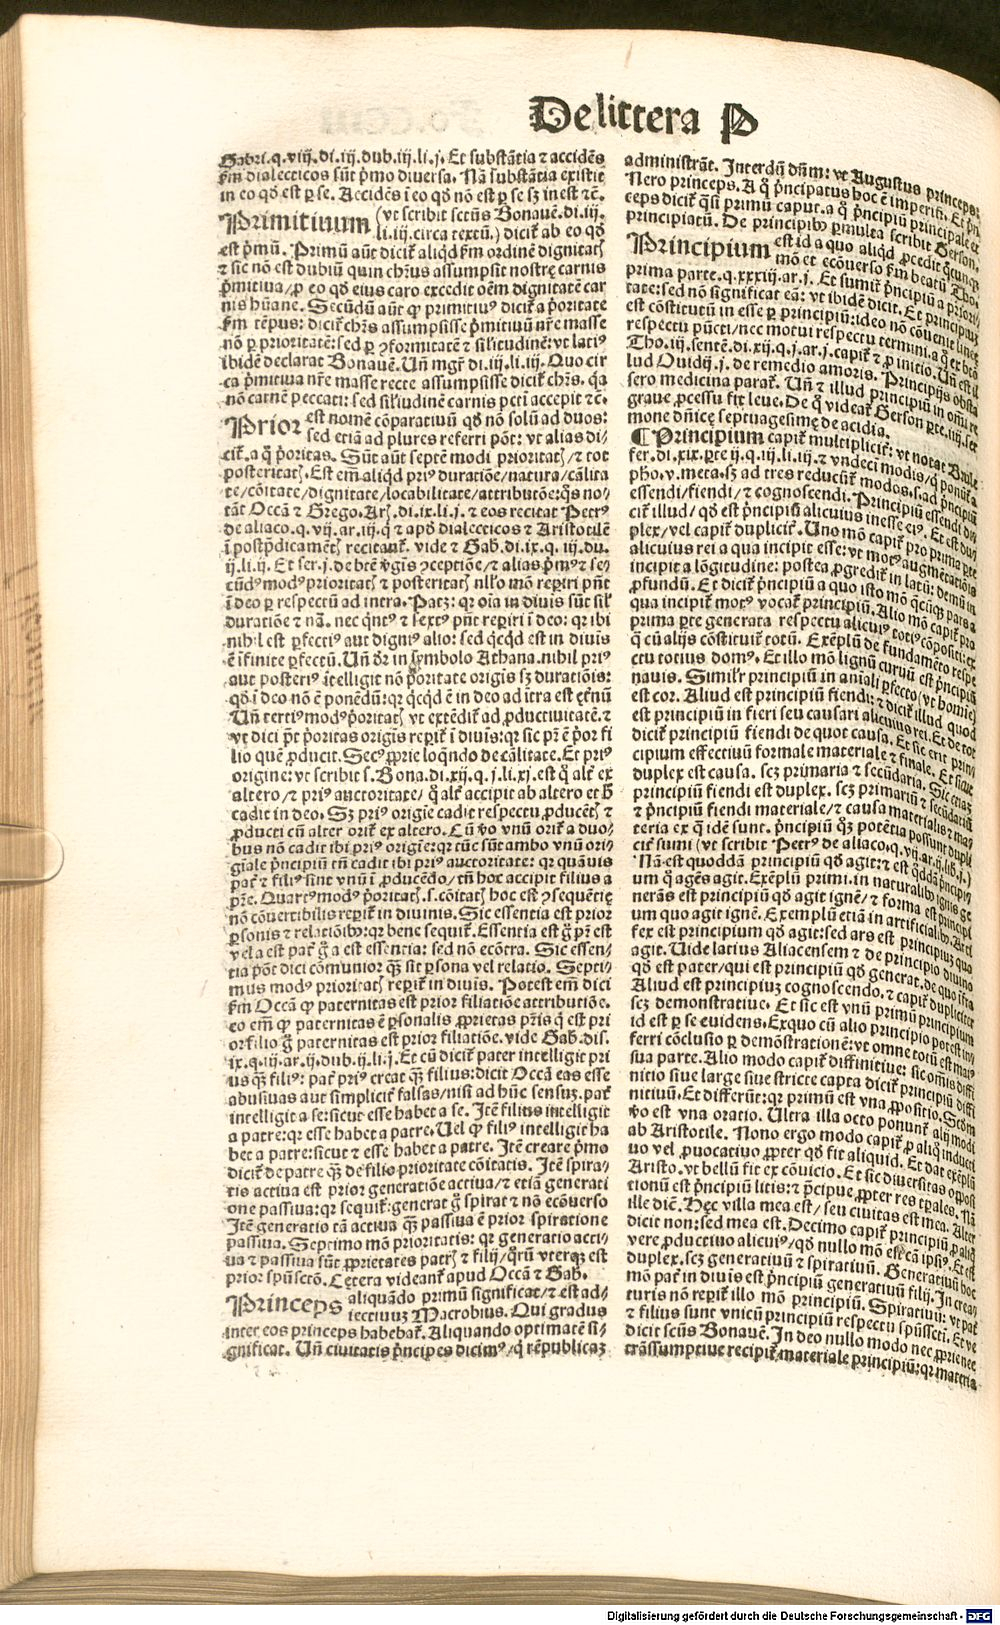 De littera P
Gabri.q.viij.di.iij.dub.iij.li.j. Et substātia ⁊ accidēs
ẜm dialecticos sūt p̄mo diuersa. Nā substātia existit
in eo qď est ꝑ se. Accidēs ī eo qď nō est ꝑ se sꝫ in est ⁊c̄.
Primitiuum (vt scribit sctūs Bonauē.di.iij.
li.iij.circa textū.) dicit᷑ ab eo qď
est p̄mū. Primū aūt dicit᷑ aliqď ẜm ordinē dignitatꝭ
⁊ sic nō est dubiū quin chr̄us assumpsit nostrę carnis
p̄mitiua/ꝓ eo qď eius caro excedit oēm dignitatē car
nis hūane. Secūdū aūt ꝙ primitiuꝰ dicit᷑ a p̄oritate
ẜm tēpus: dicit᷑ chr̄s assumpsisse p̄mitiuū nr̄e masse
nō ꝑ prioritatē: sed ꝑ ꝯformitatē ⁊ sil'itudinē: vt latiꝰ
ibidē declarat Bonauē. Uñ mgr̄ di.iij.li.iij. Quo cir
ca p̄mitiua nr̄e masse recte assumpsisse dicit᷑ chr̄s. q̄a
nō carnē peccati: sed sil'itudinē carnis pcti accepit ⁊c̄.
Prior est nomē cōparatiuū qď nō solū ad duos:
sed etiā ad plures referri pōt: vt alias di-
cit᷑. a q̄ p̄oritas. Sūt aūt septē modi prioritatꝭ ⁊ tot
posteritatꝭ. Est em̄ aliqď priꝰ duratiōe/natura/cālita
te/cōitate/dignitate/locabilitate/attributōe: q̄s no-
tāt Occā ⁊ Grego. Arī.di.ix.li.j. ⁊ eos recitat Petrꝰ
de aliaco.q.vij.ar.iij.q̄ ⁊ apď dialecticos ⁊ Aristotilē
ī postp̄dicamētꝭ recitant᷑. vide ⁊ Gab.di.ix.q.iij.du.
ij.li.ij. Et ser.j.de btē v̄gis ꝯceptiōe/⁊ alias p̄mꝰ ⁊ se-
cūdꝰ modꝰ prioritatꝭ ⁊ posteritatꝭ nll'o mō reꝑiri pn̄t
ī deo ꝑ respectū ad intra. Patꝫ: qꝛ oīa in diuis sūt sil'
duratiōe ⁊ nā. nec q̄ntꝰ ⁊ sextꝰ pn̄t reꝑiri ī deo: qꝛ ibi
nihil est ꝑfectiꝰ aut digniꝰ alio: sed q̄cqď est in diuīs
ē īfinite ꝑfectū. Uñ dr̄ in symbolo Athana. nihil priꝰ
aut posteriꝰ ītelligit nō p̄oritate origīs sꝫ duratiōis:
qď ī deo nō ē ponēdū: qꝛ q̄cqď ē in deo ad ītra est ęt̄nū
Uñ tertiꝰ modꝰ p̄oritatꝭ vt extēdit᷑ ad ꝓductiuitatē.⁊
vt dici pōt p̄oritas origīs reꝑit᷑ ī diuīs: qꝛ sic pr̄ ē p̄or fi
lio quē ꝓducit. Secꝰ ꝓprie loq̄ndo de cālitate. Et priꝰ
origine: vt scribit s.Bona.di.xij.q.j.li.xj. est q̄ alt᷑ ex
altero/⁊ priꝰ auctoritate/q̄ alt᷑ accipit ab altero et h̄
cadit in deo. Sꝫ priꝰ origie cadit respectu ꝓducētꝭ ⁊
ꝓducti cū alter orit᷑ ex altero. Cū v̄o vnū orit᷑ a duo-
bus nō cadit ibi priꝰ origie: qꝛ tūc sūt ambo vnū ori-
giale p̄ncipiū tn̄ cadit ibi priꝰ auctoritate: qꝛ quāuis
pat᷑ ⁊ filiꝰ sint vnū ī ꝓducēdo/tn̄ hoc accipit filius a
pr̄e. Quartꝰ modꝰ p̄oritatꝭ.s.cōitatꝭ hoc est ꝯsequētię
nō cōuertibilis reꝑit᷑ in diuinis. Sic essentia est prior
ꝑsonis ⁊ relatiōibꝰ: qꝛ bene sequit᷑. Essentia est g̊ pr̄ est
vel a est pat᷑ g̊ a est essentia: sed nō ecōtra. Sic essen-
tia pōt dici cōmunior q̄ꝫ sit ꝑsona vel relatio. Septi-
mus modꝰ prioritatꝭ reꝑit᷑ in diuis. Potest em̄ dici
ẜm Occā ꝙ paternitas est prior filiatiōe attributiōe.
eo em̄ ꝙ paternitas ē ꝑsonalis ꝓprietas pr̄is q̄ est pri
or filio g̊ paternitas est prior filiatiōe. vide Gab.dis.
ix.q.iij.ar.ij.dub.ij.li.j. Et cū dicit᷑ pater intelligit pri
us q̄ꝫ filiꝰ: pat᷑ priꝰ creat q̄ꝫ filius: dicit Occā eas esse
abusiuas aut simplicit᷑ falsas/nisi ad hūc sensuꝫ. pat᷑
intelligit a se: sicut esse habet a se. Itē filius intelligit
a patre: qꝛ esse habet a patre. Uel ꝙ filiꝰ intelligit ha
bet a patre: sicut ⁊ esse habet a patre. Itē creare p̄mo
dicit᷑ de patre q̄ꝫ de filio prioritate cōitatis. Itē spira-
tis actiua est prior generatiōe actiua/⁊ etiā generati
one passiua: qꝛ sequit᷑: generat g̊ spirat ⁊ nō ecōuerso
Itē generatio tā actiua q̄ꝫ passiua ē prior spiratione
passiua. Septimo mō prioritatis: qꝛ generatio acti-
ua ⁊ passiua sūt ꝓprietates patrꝭ ⁊ filij/qūrū vterqꝫ est
prior spūsctō. Cętera videant᷑ apud Occā ⁊ Gab.
Princeps aliquādo primū significat/⁊ est ad-
iectiuuꝫ Macrobius. Qui gradus
inter eos princeps habebat᷑. Aliquando optimatē si-
gnificat. Uñ ciuitatis p̄ncipes dicimꝰ/q̄ rēpublicaꝫ
administrāt. Interdū dn̄m: vt Augustus princeps:
Nero princeps. A q̄ p̄ncipatus hoc ē imperiū. Et p̄n
ceps dicit᷑ q̄si primū caput. a q̄ p̄ncipiū principale et
principiatū. De principibꝰ ꝑmulta scribit Gerson.
Principium est id a quo aliqď ꝓcedit q̄cunqꝫ
mō et ecōuerso ẜm beatū Tho.
prima parte.q.xxxiij.ar.j. Et sumit᷑ p̄ncipiū a priori-
tate: sed nō significat eā: vt ibidē dicit. Et principiuꝫ
est cōstitutū in esse ꝑ principiū: ideo nō cōuenit lineę
respectu pūcti/nec motui respectu termini. a q̄ ex btō
Tho.iij.sentē.di.xij.q.j.ar.j. capit᷑ ⁊ ꝓ initio. Uñ est il
lud Ouidij.j. de remedio amoris. Principijs obsta
sero medicina parat᷑. Uñ ⁊ illud principiū in om̄i re
graue ꝓcessu fit leue. De q̄ videat᷑ Gerson ꝑte.iiij.ser
mone dn̄icę septuagesimę de acidia.
¶ Principium capit᷑ multiplicit᷑: vt notat Brule
fer.di.xix.ꝑte ij.q.iij.li.iij.⁊ vndeci modis/q̄ ponūt᷑ a
pho.v.meta. sꝫ ad tres reducūt᷑ modos.s.ad p̄ncipiū
essendi/fiendi/⁊ cognoscendi. Principiū essendi di-
cit᷑ illud/qď est p̄ncipiū alicuius inesse eiꝰ. Et est du-
plex/vel capit᷑ duplicit᷑. Uno mō capit᷑ pro prima ꝑte
alicuius rei a qua incipit esse: vt motꝰ augmētatiōis
incipit a lōgitudine: postea ꝓgredit᷑ in latū: demū in
ꝓfundū. Et dicit᷑ p̄ncipiū a quo isto mō q̄cūqꝫ pars a
qua incipit motꝰ vocat᷑ principiū. Alio mō capit᷑ pro
prima ꝑte generata respectu alicuiꝰ totiꝰ cōpositi: ex
q̄ cū alijs cōstituit᷑ totū. Exēplū de fundamēto respe
ctu totius domꝰ. Et illo mō lignū curuū est p̄ncipiū
nauis. Similr̄ principiū in aniali ꝑfecto (vt homie)
est cor. Aliud est principiū fiendi: ⁊ dicit᷑ illud quod
est principiū in fieri seu causari alicuius rei. Et de tot
dicit᷑ principiū fiendi de quot causa. Et sic erit prin
cipium effectiuū formale materiale ⁊ finale. Et sicut
duplex est causa. scꝫ primaria ⁊ secūdaria. Sic etiaꝫ
principiū fiendi est duplex. scꝫ primariū ⁊ secūdariū
⁊ p̄ncipiū fiendi materiale/⁊ causa materialis ⁊ ma-
teria ex q̄ idē sunt. p̄ncipiū q̊ꝫ potētia possunt dupli
cit᷑ sumi (vt scribit Petrꝰ de aliaco.q.vij.ar.ij.lib.j.)
Nā est quoddā principiū qď agit: ⁊ est q̄ddā p̄ncipi-
um q̄ agēs agit. Exēplū primi. in naturalibꝰ ignis ge
nerās est principiū qď agit ignē/⁊ forma est principi
um quo agit ignē. Exemplū etiā in artificialibꝰ. Arti
fex est principium qď agit: sed ars est principiuꝫ quo
agit. Uide latius Aliacensem ⁊ de principio diuino
qď est pater/qui est principiū qď generat. de quo īfra
Aliud est principiuꝫ cognoscendo. ⁊ capit᷑ dupliciter
scꝫ demonstratiue. Et sic est vnū primū principium
id est ꝑ se euidens. Ex quo cū alio principio potest in-
ferri cōclusio ꝑ demōstrationē: vt omne totū est maiꝰ
sua parte. Alio modo capit᷑ diffinitiue: sic omis diffi
nitio siue large siue stricte capta dicit᷑ principiū diffi
nitiuū. Et differūt: qꝛ primū est vna ꝓpositio. Scdm
v̄o est vna oratio. Ultra illa octo ponunt᷑ alij modi
ab Aristotile. Nono ergo modo capit᷑ ꝓ aliq̄ inducti
uo vel ꝓuocatiuo ꝓpter qď fit aliquid. Et dat exēplū
Aristo. vt bellū fit ex cōuicio. Et sic diuersitas opposi
tionū est p̄ncipiū litis: ⁊ p̄cipue ꝓpter res tꝑales. Nā
ille diē. Hęc villa mea est/seu ciuitas est mea. Alter
dicit non: sed mea est. Decimo capit᷑ principiū ꝓ aliq̄
vere ꝓductiuo alicuiꝰ/qď nullo mō est cā ipsiꝰ. Et est
duplex. scꝫ generatiuū ⁊ spiratiuū. Generatiuū hoc
mō pat᷑ in diuis est p̄ncipiū generatiuū filij. In crea
turis nō reꝑit᷑ illo mō principiū. Spiratiuū: vt pat᷑
⁊ filius sunt vnicū principiū respectu spūsscti. Et vt
dicit scūs Bonauē. In deo nullo modo nec ꝓprie nec
trāssumptiue recipit᷑ materiale principiū: qꝛ materia
Digitalisierung gefördert durch die Deutsche Forschungsgemeinschaft - DFG